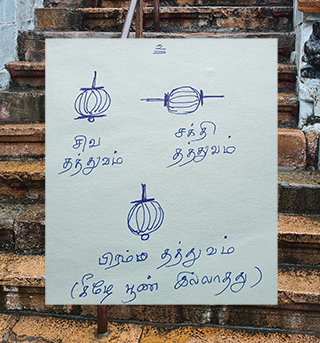 உ
சிவ
தத்துவம்
சக்தி
தத்துவம்
பிரம்ம தத்துவம்
(கீழே பூண் இல்லாதது)